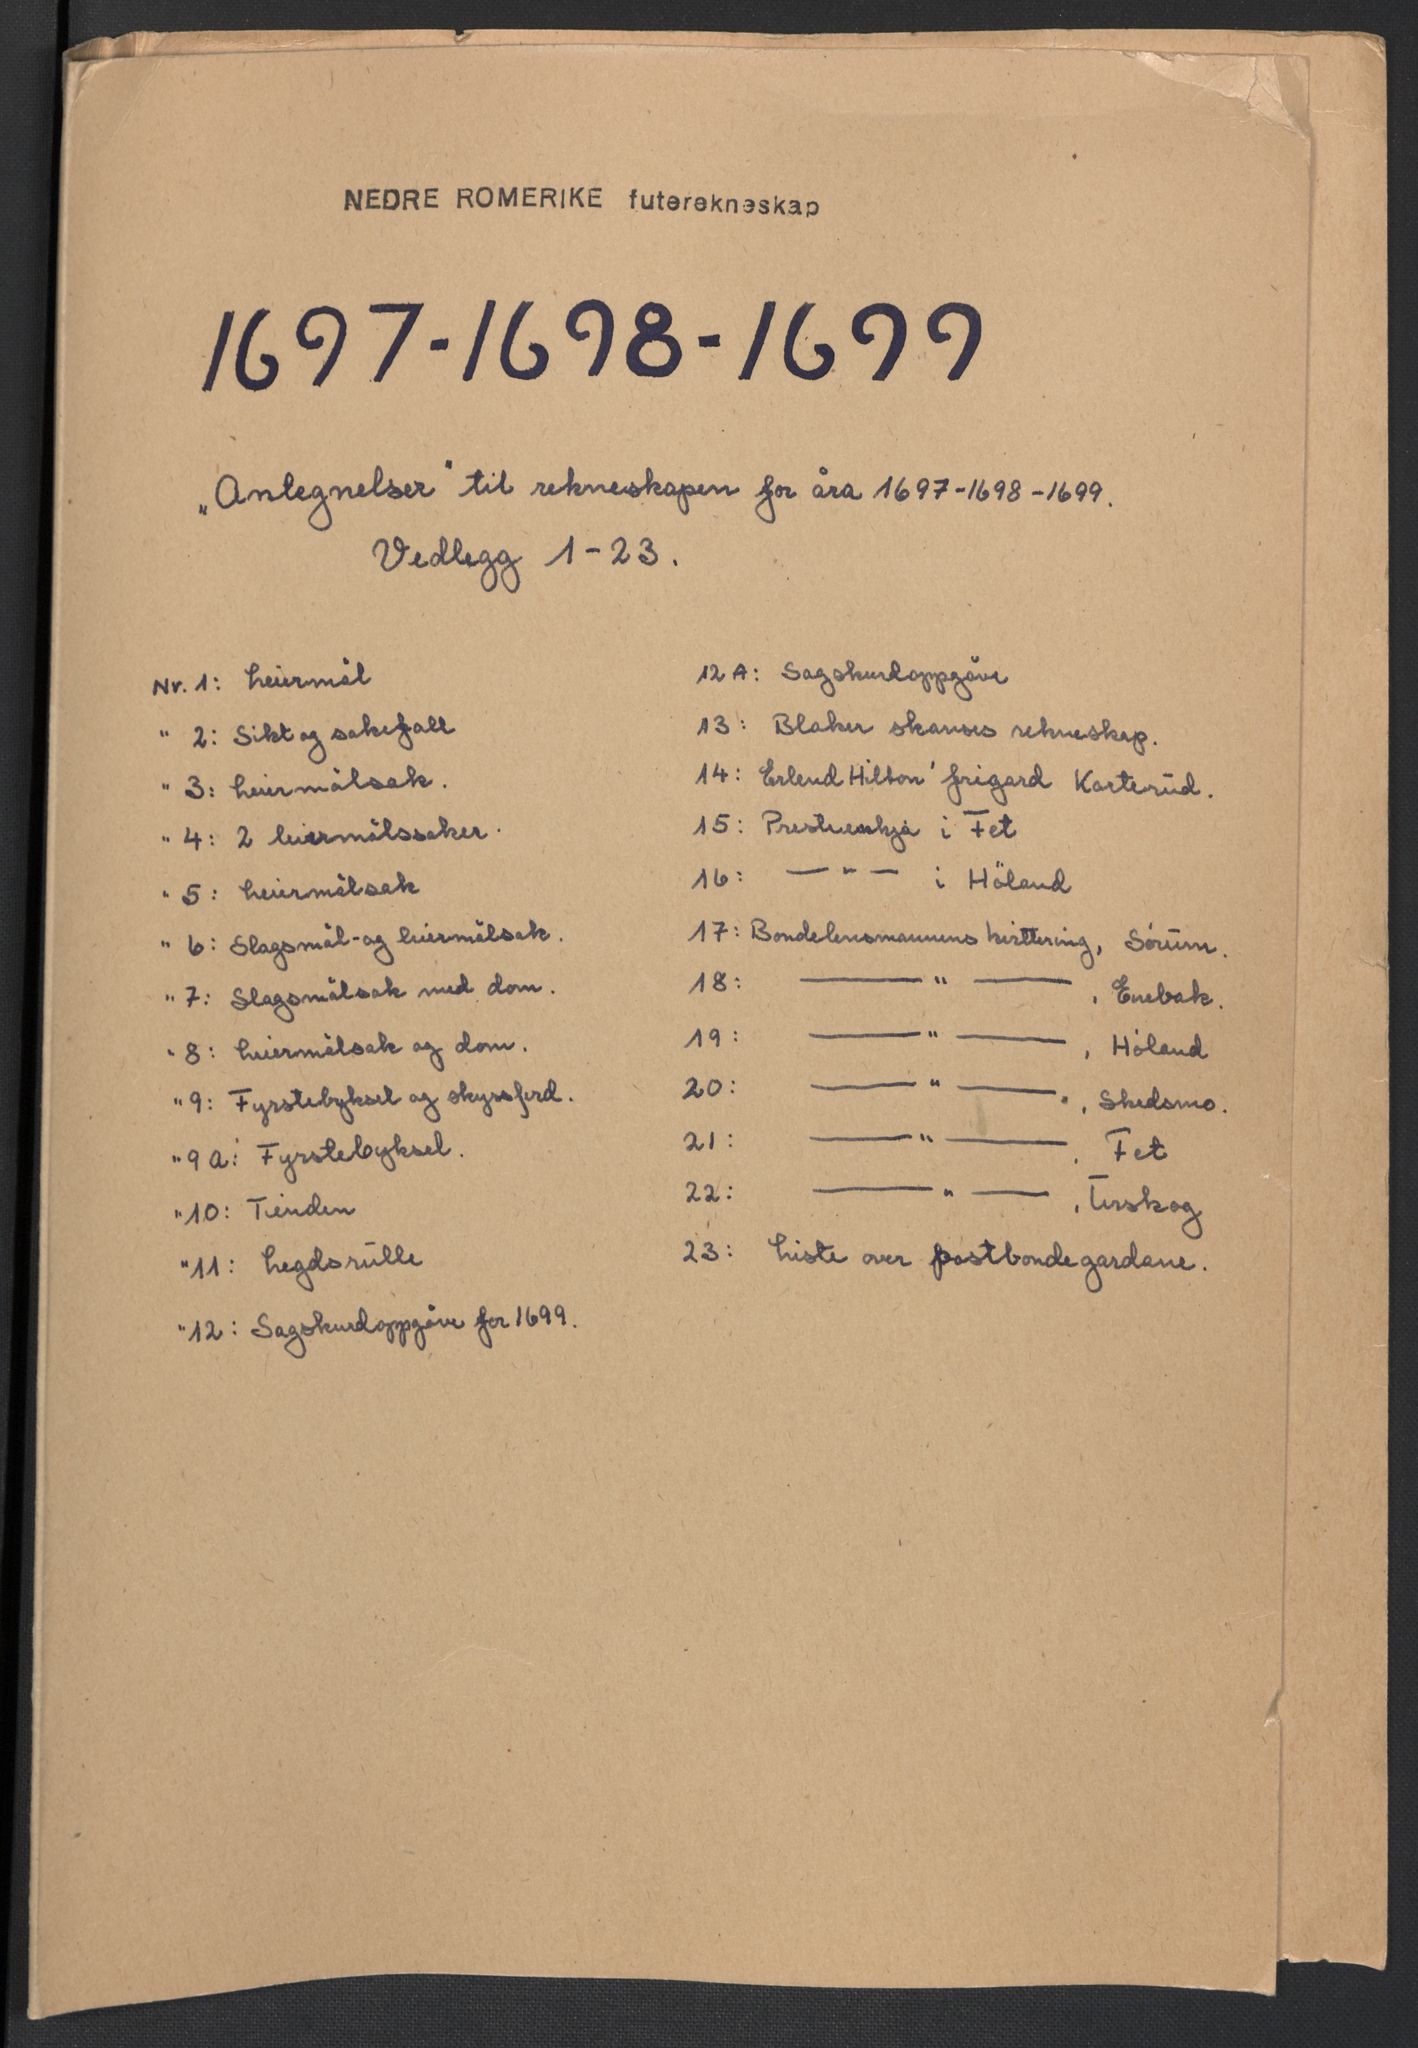 NEDRE ROMERIKE futerekneskap
1697-1698-1699
„Antegnelser" til rekneskapen for åra 1697-1698-1699.
Vedlegg 1-23.
Nr. 1: Leiermål
" 2: Sikt og sakefall
" 3: Leiermålsak.
" 4: 2 leiermålssaker.
" 5: Leiermålsak
" 6: Slagsmål- og leiermålsak.
" 7: Slagsmålsak med dom.
" 8: Leiermålsak og dom.
" 9: Fyrstebyksel og skyssferd.
" 9a: Fyrstebyksel.
" 10: Tienden
" 11: Legdsrulle
" 12: Sagskurdoppgåve for 1699.
12 A: Sagskurdoppgåve
13: Blaker skanses rekneskap.
14: Erlend Hilton' frigard Karterud.
15: Prestenkja i Fet
16: — " — i Höland
17: Bondelensmannens kvittering, Sörum.
18: — " — , Enebak.
19: — " — , Höland
20: — " — ", Skedsmo.
21: — " — , Fet
22: — " — , Urskog
23: Liste over postbondegardane.